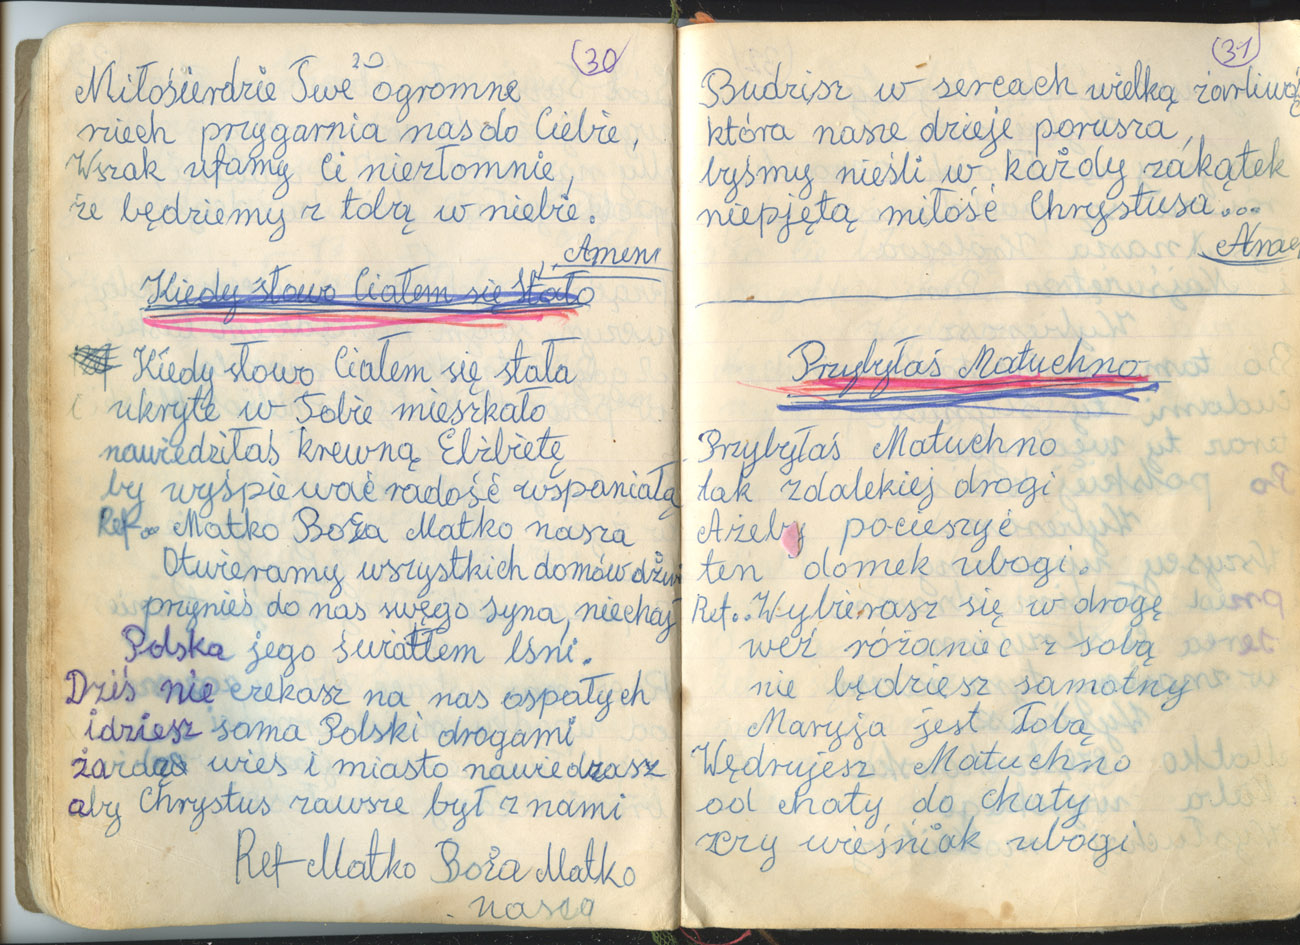 30
Miłosierdzie Twe ogromne
niech przygarnia nas do Ciebie,
Wszak ufamy Ci niezłomnie,
że będziemy z tobą w niebie.
Amen
Kiedy słowo Ciałem się stało
Kiedy słowo Ciałem się stała
ukryte w Tobie mieszkało
nawiedziłaś krewną Elżbietę
by wyśpiewać radość wspaniałą
Ref.. Matko Boża Matko nasza
Otwieramy wszystkich domów dźwi
przynieś do nas swęgo syna, niechaj
Polska jego światłem lśni.
Dziś nie czekasz na nas ospałych
idziesz sama Polski drogami
żardąo wieś i miasto nawiedzasz
aby Chrystus zawsze był z nami
Ref Matko Boża Matko
nasza
31
Budzisz w sercach wielką żarliwoś
która nasze dzieje porusza,
byśmy nieśli w każdy zakątek
niepjętą miłość Chrystusa...
Amen
Przybyłaś Matuchno
Przybyłaś Matuchno
tak zdalekiej drogi
Ażeby pocieszyć
ten domek ubogi.
Ref.. Wybierasz się w drogę
weź różaniec z sobą
nie będziesz samotny
Maryja jest Tobą
Wędrujesz Matuchno
od chaty do chaty
czy wieśniak ubogi